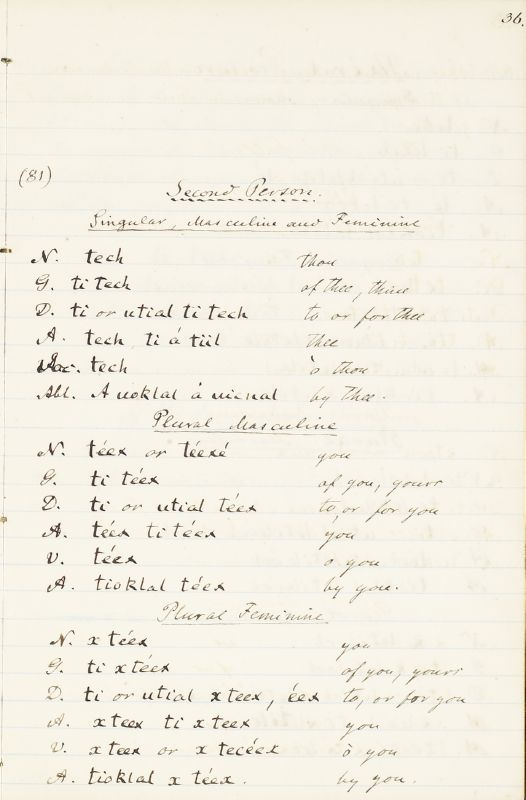 36.
(81)
Second Person.
Singular, Masculine and Feminine
N. tech thou
G. ti tech of thee, thine
D. ti or utial ti tech to or for thee
A. tech ti á tiil thee
Voc. tech ò thou
Abl. A uoklal á uicnal by thee.
Plural Masculine
N. téex or téexé you
G. ti téex of you, yours
D. ti or utial téex to, or for you
A. téex ti téex you
V. téex o you
A. tioklal téex by you.
Plural Feminine
N. x téex you
G. ti x téex of you, yours
D. ti or utial x teex, éex to, or for you
A. x teex ti x teex you
V. x teex or x tecéex ò you
A. tioklal x téex. by you.